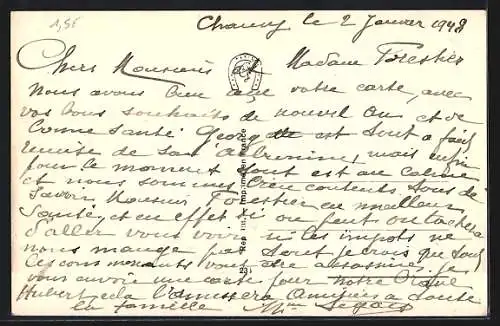 1,5€
Chauny le 2 Janvier 1948
Chers Monsieur et Madame Forestier
Nous avons bien reçu votre carte, avec
vos bons souhaits de nouvel an et de
bonne santé Georges est tout à fait
remise de son albumine, mais enfin
pour le moment tout est au calme
et nous sommes bien contents. Nous de
savoir Monsieur Forestier en meilleure
santé, et en effet si on peut on tachera
d'aller vous voir si les impots ne
nous mange pas tout je crois que tout
ces commerçants vont être assassiné. Je
vous envoie une carte pour notre
Hubert cela l'amusera Amitiées à toute
la famille Mme
Rep. int. Imprimé en France